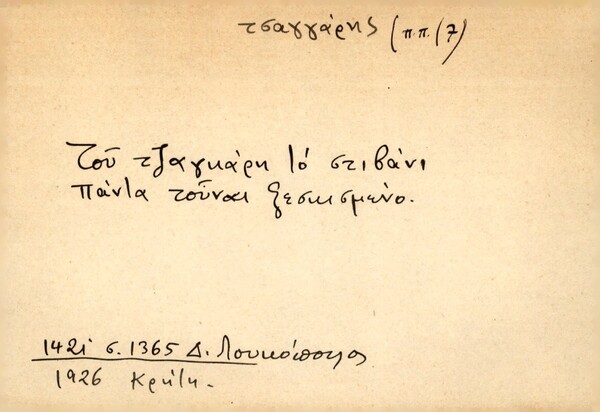 τσαγγάρης (π.π. (7)
Τοῦ τζαγκάρη τό στιβάνι
πάντα τοῦναι ξεσκισμένο.
1421 σ. 1365 Δ. Λουκόπουλος
1926 Κρήτη.